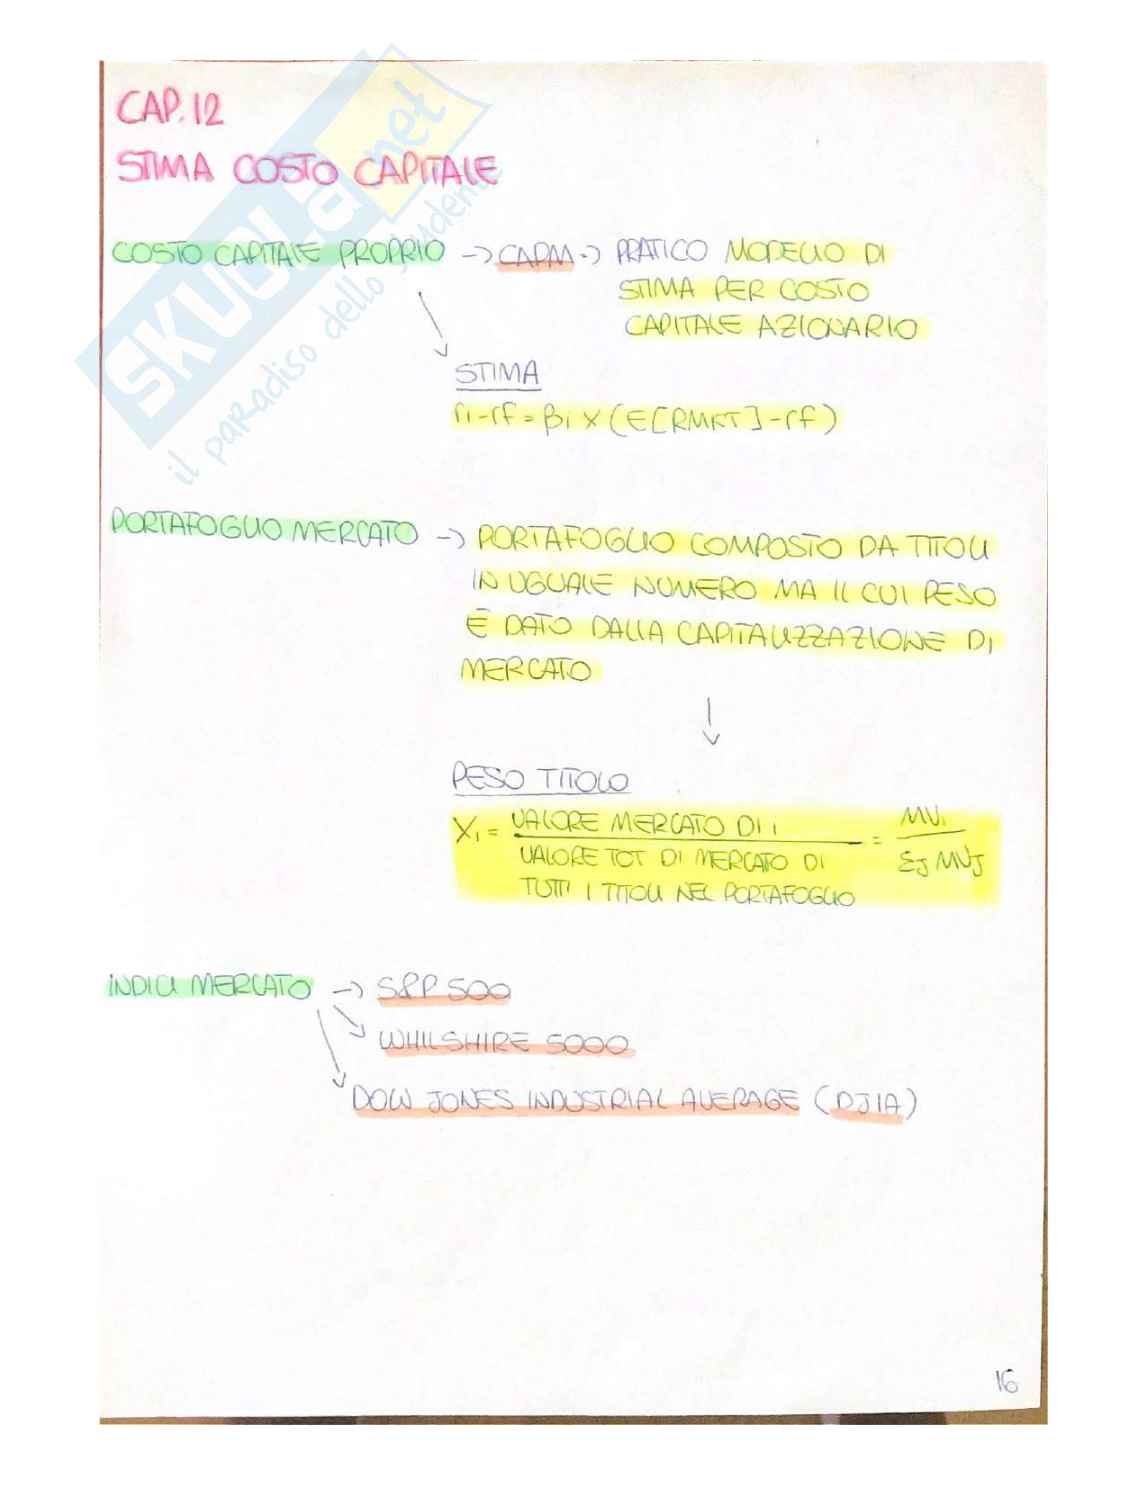 CAP. 12
STIMA COSTO CAPITALE
COSTO CAPITALE PROPRIO -> CAPM -> PRATICO MODELLO DI
STIMA PER COSTO
CAPITALE AZIONARIO
STIMA
ri-rf = βi x (E[RMKT]-rf)
PORTAFOGLIO MERCATO -> PORTAFOGLIO COMPOSTO DA TITOLI
IN UGUALE NUMERO MA IL CUI PESO
È DATO DALLA CAPITALIZZAZIONE DI
MERCATO
PESO TITOLO
Xi = VALORE MERCATO DI i = MVi
VALORE TOT DI MERCATO DI ΣJ MVJ
TUTTI I TITOLI NEL PORTAFOGLIO
INDICI MERCATO -> S&P 500
WHILSHIRE 5000
DOW JONES INDUSTRIAL AVERAGE (DJIA)
16
SKUOLA.net
il paradiso dello studente